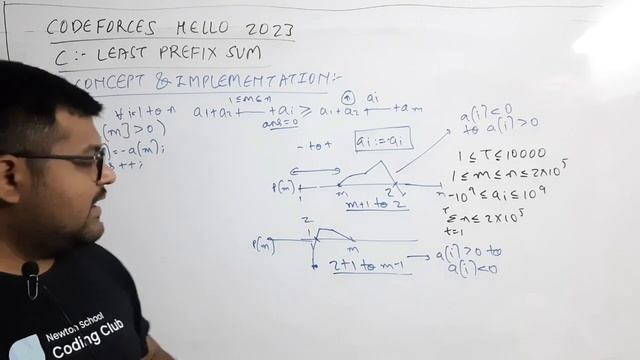 CODEFORCES HELLO 2023
C :- LEAST PREFIX SUM
CONCEPT & IMPLEMENTATION:-
1≤m≤n
∀ i=1 to n
a1+a2+——+ai ≥ a1+a2——+am
ai
ans=0
[m]>0)
=-a(m);
++;
- to +
ai:=-ai
a[i]<0
to a[i]>0
P(m)
1
m
2
n
m+1 to 2
1≤T≤10000
1≤m≤n≤2×10^5
-10^9≤ai≤10^9
Σn≤2×10^5
t=1
2
P(m)
1
m
2+1 to m-1
a[i]>0 to
a[i]<0
Newton School
Coding Club